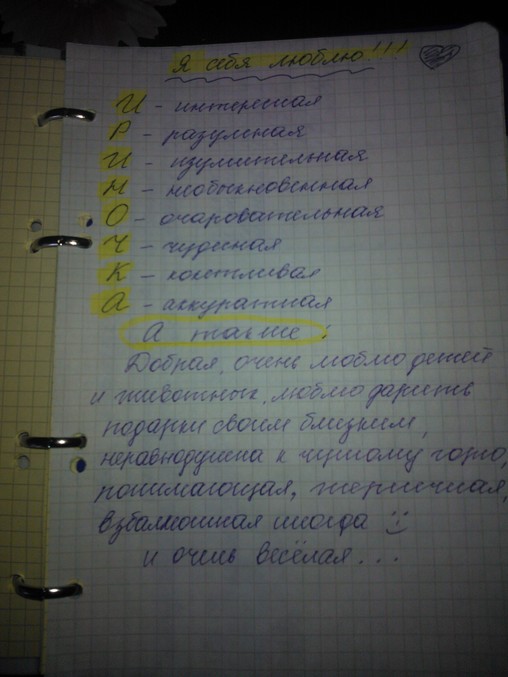 Я себя люблю!!!
И - интересная
Р - разумная
И - изумительная
Н - необыкновенная
О - очаровательная
Ч - чудесная
К - кокетливая
А - аккуратная
А также:
Добрая, очень люблю детей
и животных, люблю дарить
подарки своим близким,
неравнодушна к чужому горю,
понимающая,
взбалмошная иногда
и очень весёлая...